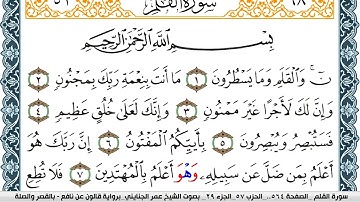 ٥١ سورة القلم ٦٨
بِسْمِ اللَّهِ الرَّحْمَٰنِ الرَّحِيمِ
نٓ وَالْقَلَمِ وَمَا يَسْطُرُونَ ١ مَا أَنتَ بِنِعْمَةِ رَبِّكَ بِمَجْنُونٍ ٢
وَإِنَّ لَكَ لَأَجْرًا غَيْرَ مَمْنُونٍ ٣ وَإِنَّكَ لَعَلَىٰ خُلُقٍ عَظِيمٍ ٤
فَسَتُبْصِرُ وَيُبْصِرُونَ ٥ بِأَييِّكُمُ الْمَفْتُونُ ٦ إِنَّ رَبَّكَ هُوَ
أَعْلَمُ بِمَن ضَلَّ عَن سَبِيلِهِ وَهْوَ أَعْلَمُ بِالْمُهْتَدِينَ ٧ فَلَا تُطِعِ
سورة القلم .الصفحة ٥٦٤.. الحزب ٥٧ .الجزء ٢٩ . بصوت الشيخ عمر الجنايني .برواية قالون عن نافع - بالقصر والصلة